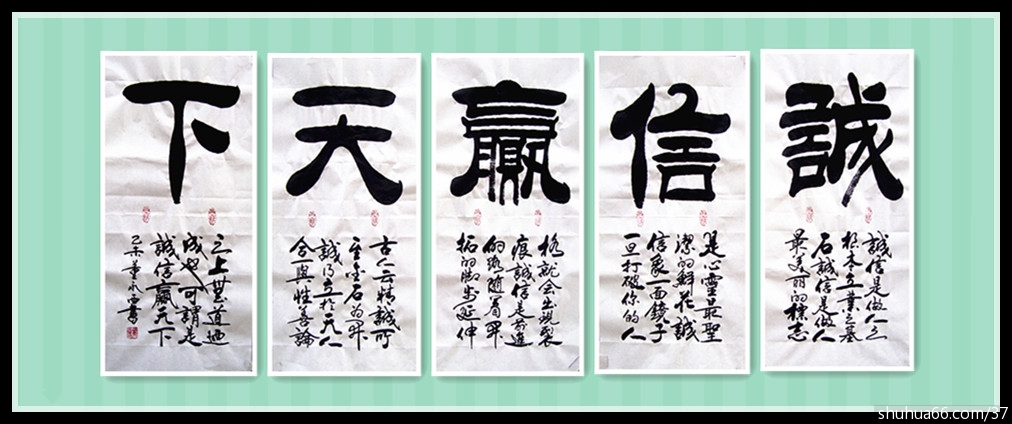 誠
誠信是做人之
根本立業之基
石誠信是做人
最美丽的標志
信
是心靈最聖
潔的鮮花誠
信象一面鏡子
一旦打破你的人
贏
格就会出現裂
痕誠信是前進
的路随着開
拓的脚步延伸
天
古人云精誠所
至金石为開
誠乃立於天人
合一與性善論
下
之上道通
成也可謂是
誠信贏天下
己未董永書
shuhua66.com/37